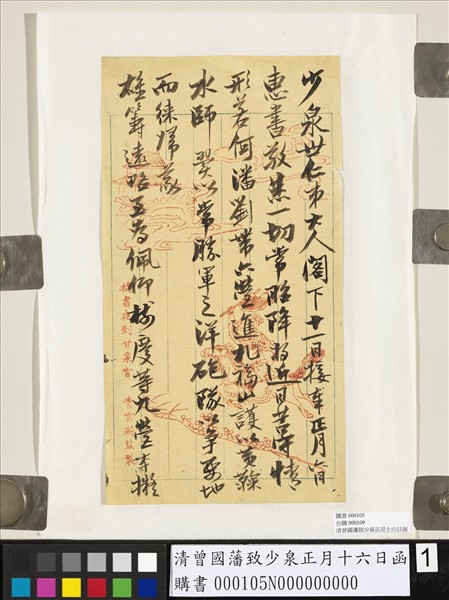 少泉世仁弟大人閣下十一日接奉正月六日
惠書敬悉一切常昭降將近日苦守情
形若何潘劉帶六營進札福山護以黃
水師 翼以常勝軍之洋砲隊以爭要地
而徠歸義
雄籌遠略至為佩仰樹慶等九營本擬
書 到甘泉宮
監製
購書 000105
台購 000109
清曾國藩致少泉正月十六日函
清曾國藩致少泉正月十六日函
購書 000105N000000000
1